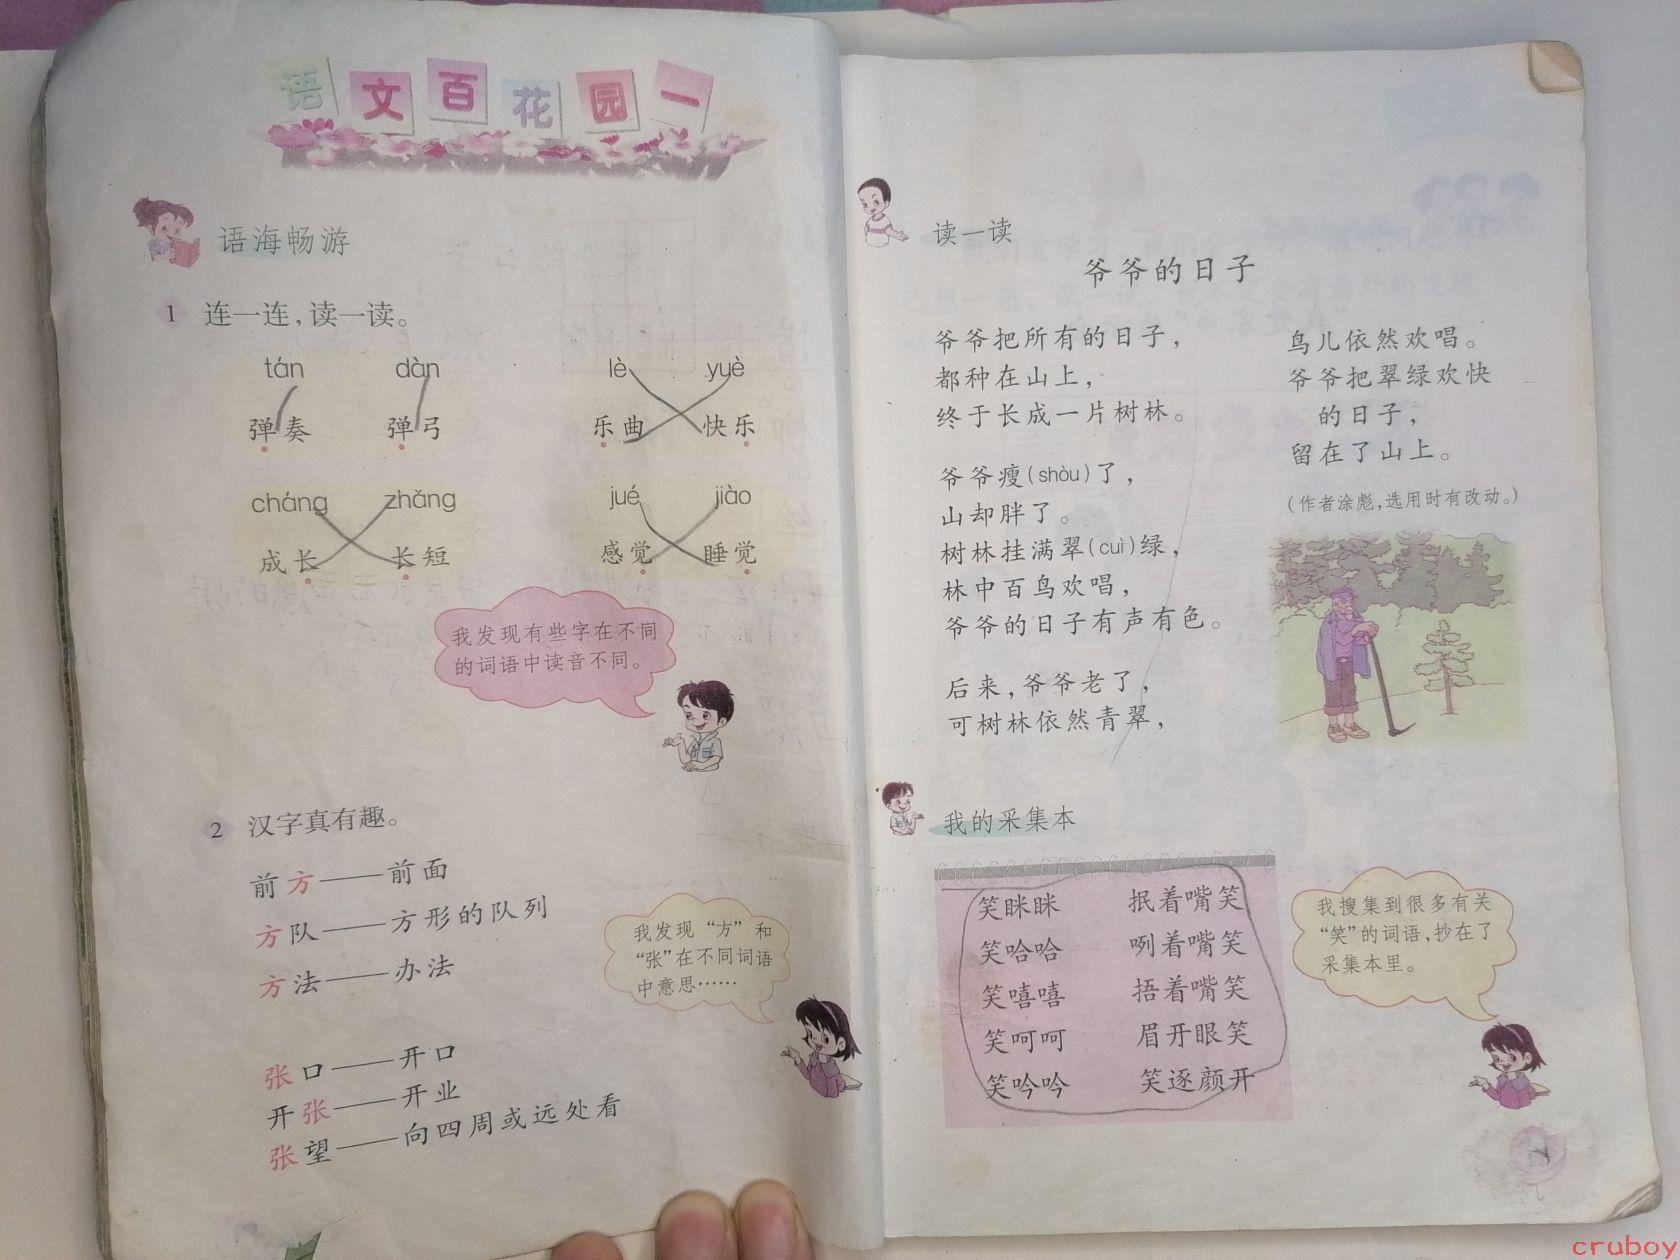 语文百花园一
语海畅游
1 连一连，读一读。
tán dàn lè yuè
弹奏 弹弓 乐曲 快乐
cháng zhǎng jué jiào
成长 长短 感觉 睡觉
我发现有些字在不同
的词语中读音不同。
2 汉字真有趣。
前方——前面
方队——方形的队列
方法——办法
我发现“方”和
“张”在不同词语
中意思……
张口——开口
开张——开业
张望——向四周或远处看
读一读
爷爷的日子
爷爷把所有的日子，
都种在山上，
终于长成一片树林。
爷爷瘦(shòu)了，
山却胖了。
树林挂满翠(cuì)绿，
林中百鸟欢唱，
爷爷的日子有声有色。
后来，爷爷老了，
可树林依然青翠，
鸟儿依然欢唱。
爷爷把翠绿欢快
的日子，
留在了山上。
(作者涂彪，选用时有改动。)
我的采集本
笑眯眯 抿着嘴笑
笑哈哈 咧着嘴笑
笑嘻嘻 捂着嘴笑
笑呵呵 眉开眼笑
笑吟吟 笑逐颜开
我搜集到很多有关
“笑”的词语，抄在了
采集本里。
cruboy